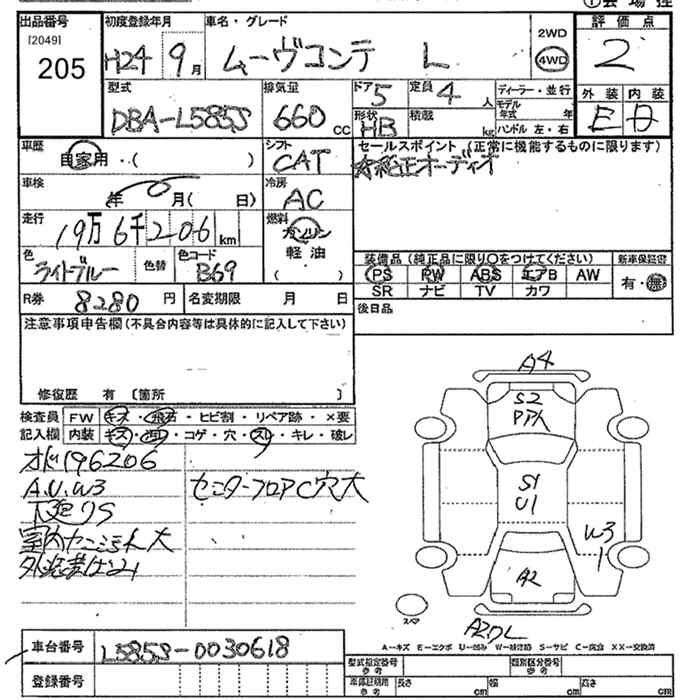 ①会場控
出品番号 初度登録年月 車名・グレード 評価点
[2049]
205
H24 9月 ムーヴコンテ L
2WD
4WD
2
型式 排気量 ドア5 定員4人 ディーラー・並行
DBA-L585S 660cc
形状 HB 積載 kg モデル年式 年
ハンドル 左・右
外装 内装
E D
車歴 自家用・( )
シフト CAT
セールスポイント (正常に機能するものに限ります)
純正オーディオ
車検 年 月( 日)
冷房 AC
走行 19万6千206km
燃料 ガソリン
軽油
( )
色 ライトブルー 色替 色コード B69
装備品 (純正品に限り○をつけてください) 新車保証書
PS PW ABS エアB AW 有・無
SR ナビ TV カワ
R券 8280円 名変期限 月 日
後日品
注意事項申告欄(不具合内容等は具体的に記入して下さい)
修復歴 有 〔箇所 〕
検査員 FW キズ・飛石・ヒビ割・リペア跡・×要
記入欄 内装 キズ・汚れ・コゲ・穴・スレ・キレ・破レ
オド196206
A.U.W3 センターフロアC穴大
下廻りS
室内ヤニ汚れ大
A4
S2
PアA
S1
U1
W3
1
A2
スペア
A2ワレ
A-キズ E-エクボ U-凹み W-補修跡 S-サビ C-腐食 XX-交換済
車台番号 L585S-0030618
登録番号
型式指定番号 参考 類別区分番号 参考
車体証明用 参考 長さ cm 幅 cm 高さ cm